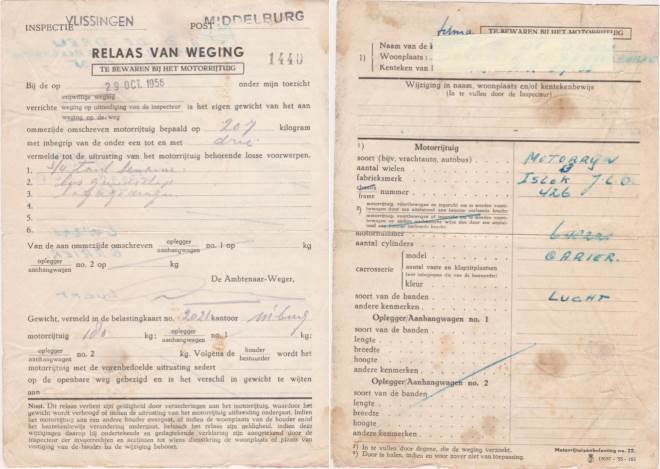 INSPECTIE VLISSINGEN POST MIDDELBURG
RELAAS VAN WEGING
TE BEWAREN BIJ HET MOTORRIJTUIG
1440
Bij de op 29 OCT. 1956 onder mijn toezicht
vrijwillige weging
verrichte weging op uitnodiging van de inspecteur is het eigen gewicht van het aan
weging op de weg
ommezijde omschreven motorrijtuig bepaald op 207 kilogram
met inbegrip van de onder een tot en met drie
vermelde tot de uitrusting van het motorrijtuig behorende losse voorwerpen.
1. 3/4 tank benzine
2.
3.
4.
5.
6.
Van de aan ommezijde omschreven oplegger aanhangwagen no. 1 op kg
oplegger aanhangwagen no. 2 op kg
De Ambtenaar-Weger,
Gewicht, vermeld in de belastingkaart no. 2021 kantoor m'burg
motorrijtuig kg; oplegger aanhangwagen no. 1 kg;
oplegger aanhangwagen no. 2 kg. Volgens de houder bestuurder wordt het
motorrijtuig met de vorenbedoelde uitrusting sedert
op de openbare weg gebezigd en is het verschil in gewicht te wijten
aan
NOOT. Dit relaas verliest zijn geldigheid door veranderingen aan het motorrijtuig, waardoor het
gewicht wordt verhoogd of indien de uitrusting van het motorrijtuig uitbreiding ondergaat. Indien
het motorrijtuig aan een andere houder overgaat, of indien de woonplaats van de houder en/of
het kentekenbewijs verandering ondergaan, behoudt het relaas zijn geldigheid, indien deze
wijzigingen daarop bij ondertekende en gedagtekende verklaring zijn aangetekend door de
inspecteur der invoerrechten en accijnzen tot wiens dienstkring de woonplaats of plaats van
vestiging van de houder na de wijziging behoort.
TE BEWAREN BIJ HET MOTORRIJTUIG
1)
Naam van de
Woonplaats
Kenteken van
Wijziging in naam, woonplaats en/of kentekenbewijs
(In te vullen door de Inspecteur)
Motorrijtuig
soort (bijv. vrachtauto, autobus) MOTORRYN
aantal wielen 3
fabrieksmerk ISLOK J.L.O.
frame nummer 426
motorrijtuig, voortbewogen en ingericht om te worden voort-
bewogen door een uitsluitend aan benzine ontleende kracht
motornummer
aantal cylinders
carrosserie
model CARIER.
aantal vaste en klapzitplaatsen
(niet inbegrepen die van de bestuurder)
kleur
soort van de banden LUCHT
andere kenmerken
Oplegger/Aanhangwagen no. 1
soort van de banden
lengte
breedte
hoogte
andere kenmerken
Oplegger/Aanhangwagen no. 2
soort van de banden
lengte
breedte
hoogte
andere kenmerken
1) In te vullen door degene, die de weging verzoekt.
2) Door te halen, indien en voor zover niet van toepassing.
Motorrijtuigenbelasting no. 23.